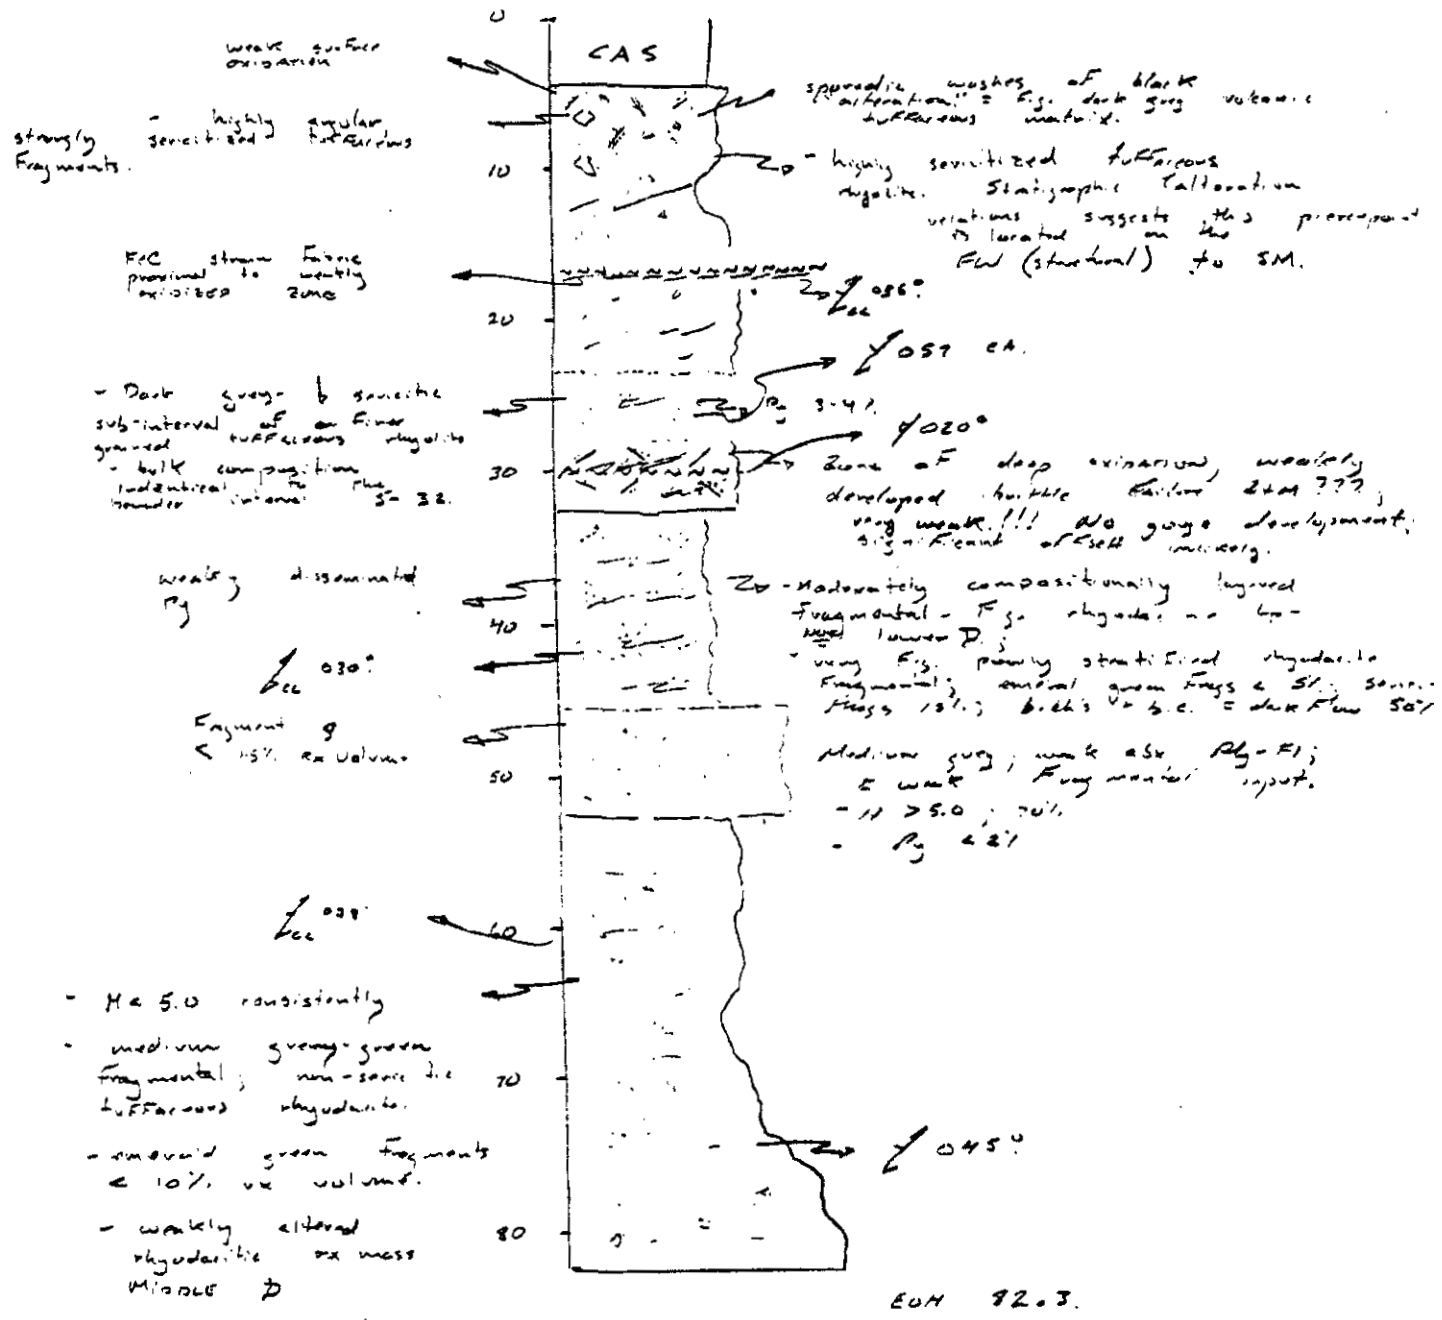 0
CAS
weak surface
oxidation
sporadic washes of black
"alteration" = F.g. dark grey volcanic
tuffaceous matrix.
- highly angular
strongly sericitized tuffaceous
Fragments.
10
- highly sericitized tuffaceous
rhyolite. Stratigraphic (alteration
variations suggests this
is located on the
FW (structural) to SM.
strain Fabric
proximal to weakly
oxidized zone
036°
20
057 CA.
- Dark grey sericitic
sub-interval of a Finer
grained tuffaceous rhyolite
- bulk composition
indentical to the
interval 5-32.
Py 3-4%
020°
30
Zone of deep oxidation, weakly
developed brittle Failure ZtM ???;
very weak!!! No gouge development;
significant offset unlikely.
weakly disseminated
Py
- Moderately compositionally layered
Fragmental - F.g.
lower D;
40
030°
- very F.g. poorly stratified rhyodacite
Fragmental; emeral green Frags < 5%;
Frags 15%; = dark Flow 50%
Fragment
< 15% rx volume
50
Medium grey, weak
weak Fragmental input.
- H > 5.0; 70%
- Py < 2%
60
028°
- H < 5.0 consistently
- medium grey-green
Fragmental; non-sericitic
tuffaceous rhyodacite.
70
045°
- emerald green Fragments
< 10% rx volume.
- weakly altered
rhyodacitic rx mass
MIDDLE D
80
EOH 82.3.